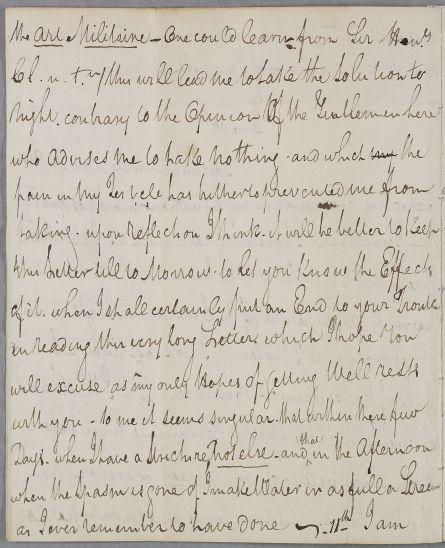 the art Militaire - One could learn from Sir Hen.y
Cl. n. t. n / this will lead me to take the Solution to
Night, contrary to the Opinion Of the Gentlemen here
who advises me to take nothing - and which the
pain in my Testicle has hitherto prevented me from
taking - upon reflection I think it will be better to keep
this Letter till to Morrow - to let you know the Effects
of it. when I shall certainly put an End to your Trouble
in reading this very long Letter which I hope You
will excuse as my only Hopes of getting Well rests
with you - to me it seems singular that within these few
Days - when I have a Stricture, not else - and that in the Afternoon
when the Spasm is gone of I make Water in as full a Stream
as I ever remember to have done - 11th I am